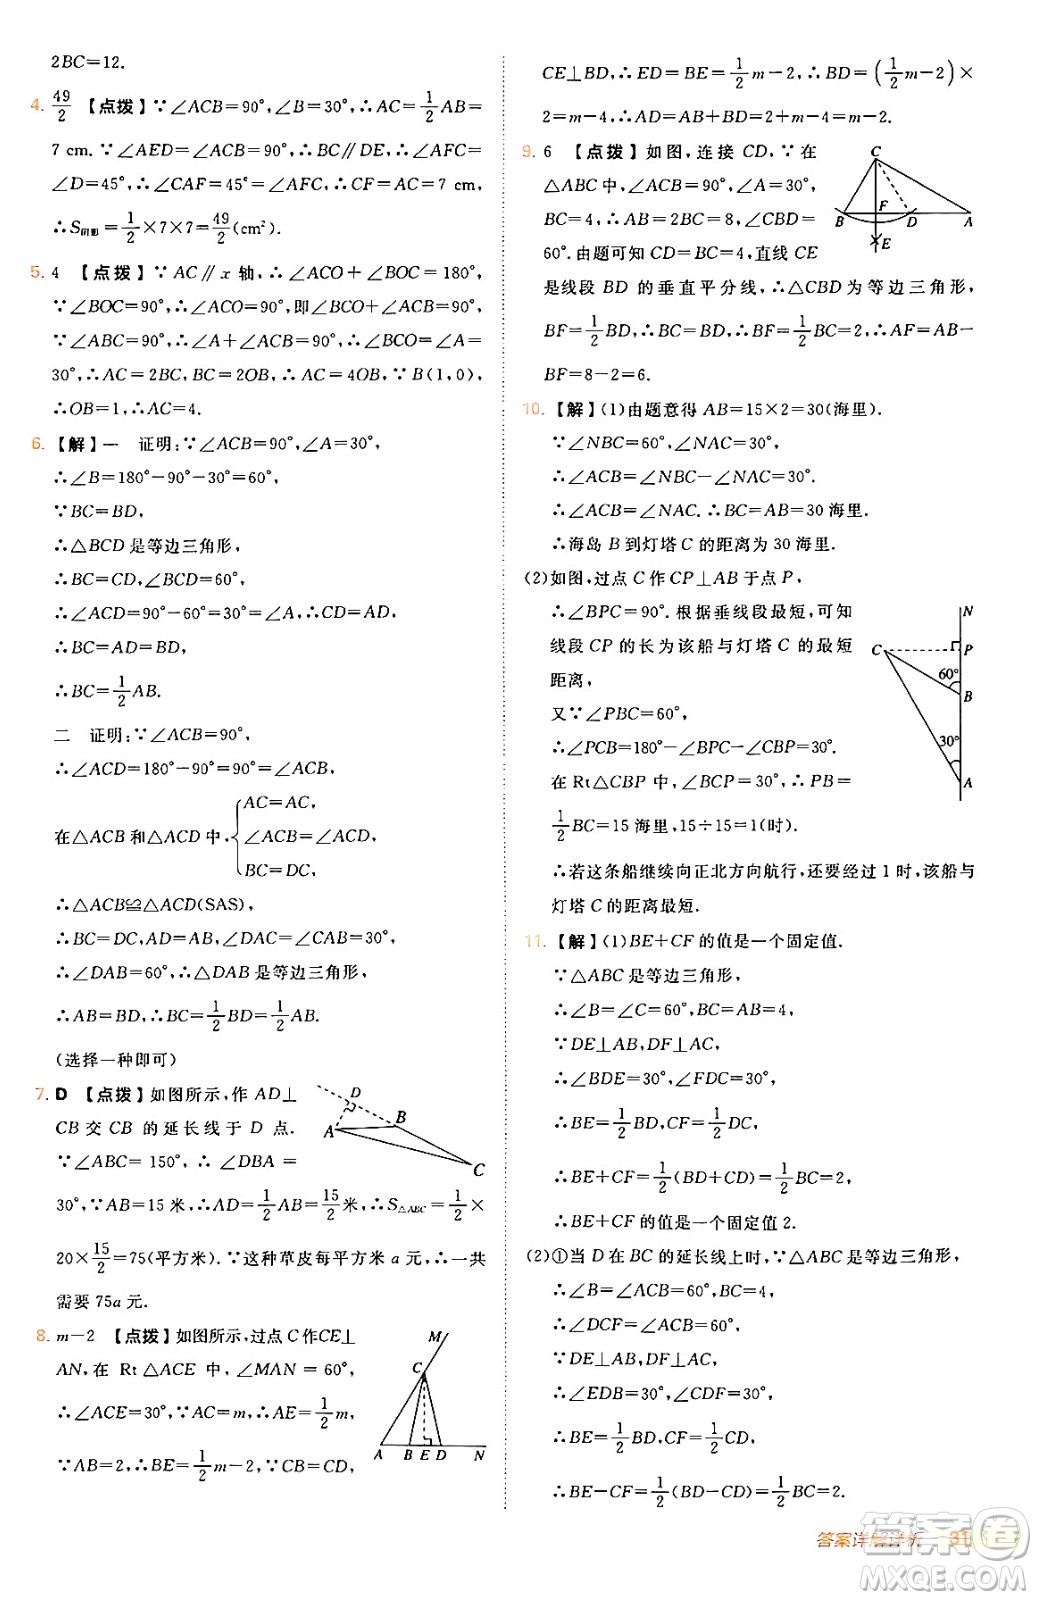 2BC=12.
4. 49/2 【点拨】∵∠ACB=90°,∠B=30°,∴AC=1/2AB=
7 cm.∵∠AED=∠ACB=90°,∴BC∥DE,∴∠AFC=
∠D=45°,∴∠CAF=45°=∠AFC,∴CF=AC=7 cm,
∴S阴影=1/2×7×7=49/2(cm²).
5. 4 【点拨】∵AC∥x 轴,∴∠ACO+∠BOC=180°,
∵∠BOC=90°,∴∠ACO=90°,即∠BCO+∠ACB=90°,
∵∠ABC=90°,∴∠A+∠ACB=90°,∴∠BCO=∠A=
30°,∴AC=2BC,BC=2OB,∴AC=4OB,∵B(1,0),
∴OB=1,∴AC=4.
6. 【解】一 证明:∵∠ACB=90°,∠A=30°,
∴∠B=180°-90°-30°=60°,
∵BC=BD,
∴△BCD 是等边三角形,
∴BC=CD,∠BCD=60°,
∴∠ACD=90°-60°=30°=∠A,∴CD=AD,
∴BC=AD=BD,
∴BC=1/2AB.
二 证明:∵∠ACB=90°,
∴∠ACD=180°-90°=90°=∠ACB,
在△ACB 和△ACD 中,{AC=AC,
∠ACB=∠ACD,
BC=DC,
∴△ACB≌△ACD(SAS),
∴BC=DC,AC=AD,∠DAC=∠BAC=30°,
∴∠DAB=60°,∴△DAB 是等边三角形,
∴AB=BD,∴BC=1/2BD=1/2AB.
(选择一种即可)
7. D 【点拨】如图所示,作 AD⊥
CB 交 CB 的延长线于 D 点.
∵∠ABC=150°,∴∠DBA=
30°,∵AB=15 米,∴AD=1/2AB=15/2米,∴S△ABC=1/2×
20×15/2=75(平方米).∵这种草皮每平方米 a 元,∴一共
需要 75a 元.
D
B
A
C
8. m-2 【点拨】如图所示,过点 C 作CE⊥
AN,在 Rt△ACE 中,∠MAN=60°,
∴∠ACE=30°,∵AC=m,∴AE=1/2m,
∵AB=2,∴BE=1/2m-2,∵CB=CD,
M
C
A B E D N
CE⊥BD,∴ED=BE=1/2m-2,∴BD=(1/2m-2)×
2=m-4,∴AD=AB+BD=2+m-4=m-2.
9. 6 【点拨】如图,连接 CD,∵在
△ABC 中,∠ACB=90°,∠A=30°,
BC=4,∴AB=2BC=8,∠CBD=
60°.由题可知 CD=CB,直线 CE
是线段 BD 的垂直平分线,∴△CBD 为等边三角形,
BF=1/2BD,∴BD=BC,∴BF=1/2BC=2,∴AF=AB-
BF=8-2=6.
C
F
B D A
E
10. 【解】(1)由题意得 AB=15×2=30(海里).
∵∠NBC=60°,∠NAC=30°,
∴∠ACB=∠NBC-∠NAC=30°.
∴∠ACB=∠NAC.∴BC=AB=30 海里.
∴海岛 B 到灯塔 C 的距离为 30 海里.
(2)如图,过点 C 作 CP⊥AB 于点 P,
∴∠BPC=90°.根据垂线段最短,可知
线段 CP 的长为该船与灯塔 C 的最短
距离,
又∵∠PBC=60°,
∴∠PCB=180°-∠BPC-∠CBP=30°.
在 Rt△CBP 中,∠BCP=30°,∴PB=
1/2BC=15 海里,15÷15=1(时).
∴若这条船继续向正北方向航行,还要经过 1 时,该船与
灯塔 C 的距离最短.
N
C
P
60°
B
30°
A
11. 【解】(1)BE+CF 的值是一个固定值.
∵△ABC 是等边三角形,
∴∠B=∠C=60°,BC=AB=4,
∵DE⊥AB,DF⊥AC,
∴∠BDE=30°,∠CDF=30°,
∴BE=1/2BD,CF=1/2CD,
∴BE+CF=1/2(BD+CD)=1/2BC=2,
∴BE+CF 的值是一个固定值 2.
(2)①当 D 在 BC 的延长线上时,∵△ABC 是等边三角形,
∴∠B=∠ACB=60°,BC=4,
∴∠DCF=∠ACB=60°,
∵DE⊥AB,DF⊥AC,
∴∠EDB=30°,∠CDF=30°,
∴BE=1/2BD,CF=1/2CD,
∴BE-CF=1/2(BD-CD)=1/2BC=2.
答案详解详析 31
答案圈
MXQE.COM